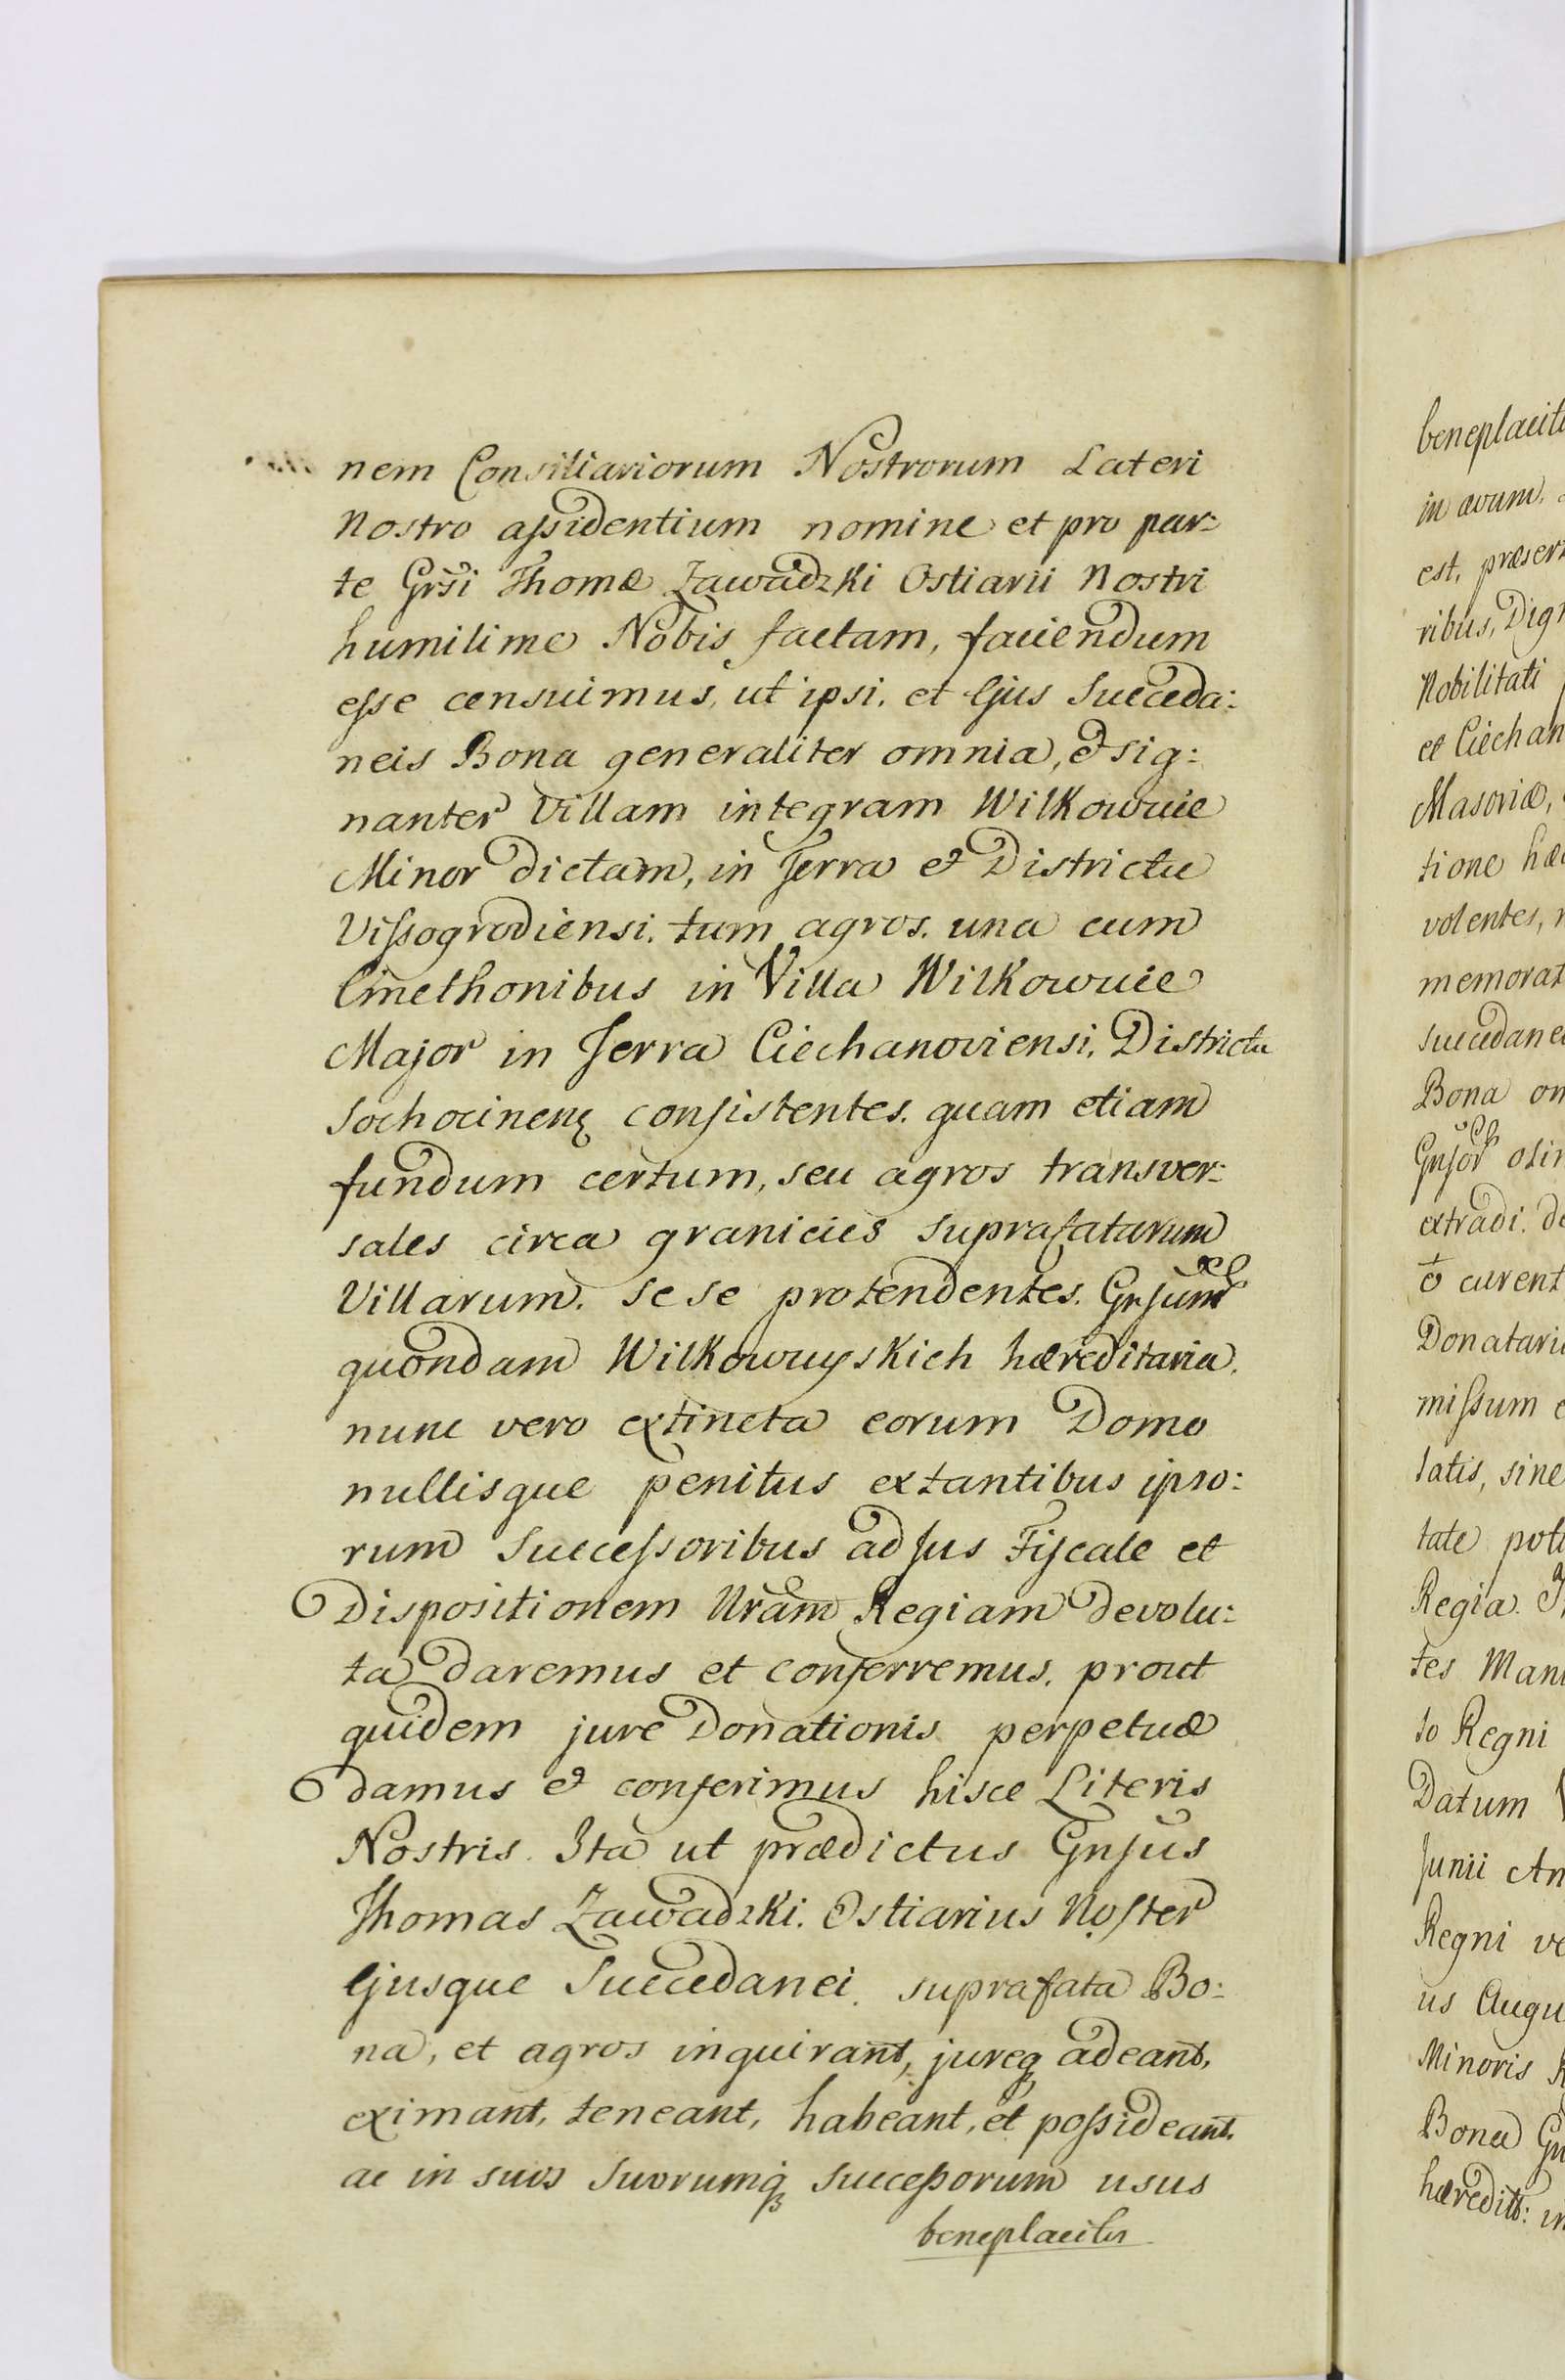 nem Consiliariorum Nostrorum Lateri
Nostro aſsidentium nomine et pro par:
te Gr̃si Thomæ Zawadzki Ostiarii Nostri
humilime Nobis factam, faciendum
eſse censuimus, ut ipsi, et Ejus Succeda:
neis Bona generaliter omnia, et sig:
nanter Villam integram Wilkowuie
Minor dictam, in Terra et Districtu
Viſsogrodiensi, tum agros, una cum
Cmethonibus in Villa Wilkowuie
Major in Terra Ciechanoviensi, Districtu
Sochocinenę consistentes, quam etiam
fundum certum, seu agros transver:
sales circa granicies suprafatarum
Villarum, sese protendentes, Gnſum
quondam Wilkowuyskich hæreditaria,
nunc vero extincta eorum Domo
nullisque penitus extantibus ipso:
rum Succeſsoribus ad Jus Fiscale et
Dispositionem Nram Regiam devolu:
ta daremus et conferremus, prout
quidem jure Donationis perpetuæ
damus et conferimus hisce Literis
Nostris. Ita ut prædictus Gnſus
Thomas Zawadzki, Ostiarius Noſter
Ejusque Succedanei, suprafata Bo:
na, et agros inquirant, jureq adeant,
eximant, teneant, habeant, et poſsideant,
ac in suos suorumq Succeßorum usus
beneplacitos
beneplacit
in ævum,
est, præser
ribus, Dig
Nobilitati
et Ciechan
Masoviæ,
tione hæ
volentes,
memorat
Succedane
Bona om
Gnſor olim
extradi, de
curent
Donatari
miſsum
tatis, sine
tate poti
Regia.
tes Man
to Regni
Datum
Junii An
Regni ve
us Augu
Minoris
Bona Gn
hæredit: